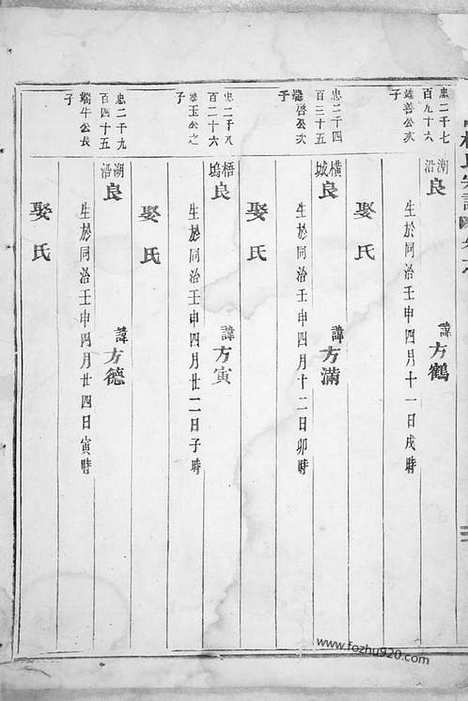 忠二千七
百九十六
公次
子
湖
沿
良
諱方鶴
生於同治壬申四月十一日戌時
娶氏
忠二千四
百三十五
公次
子
橫
城
良
諱方滿
生於同治壬申四月十二日卯時
娶氏
忠二千八
百二十六
玉公之
子
梧
塢
良
諱方寅
生於同治壬申四月廿二日子時
娶氏
忠二千九
百四十五
端牛公長
子
湖
沿
良
諱方德
生於同治壬申四月廿四日寅時
娶氏
www.fozhu920.com